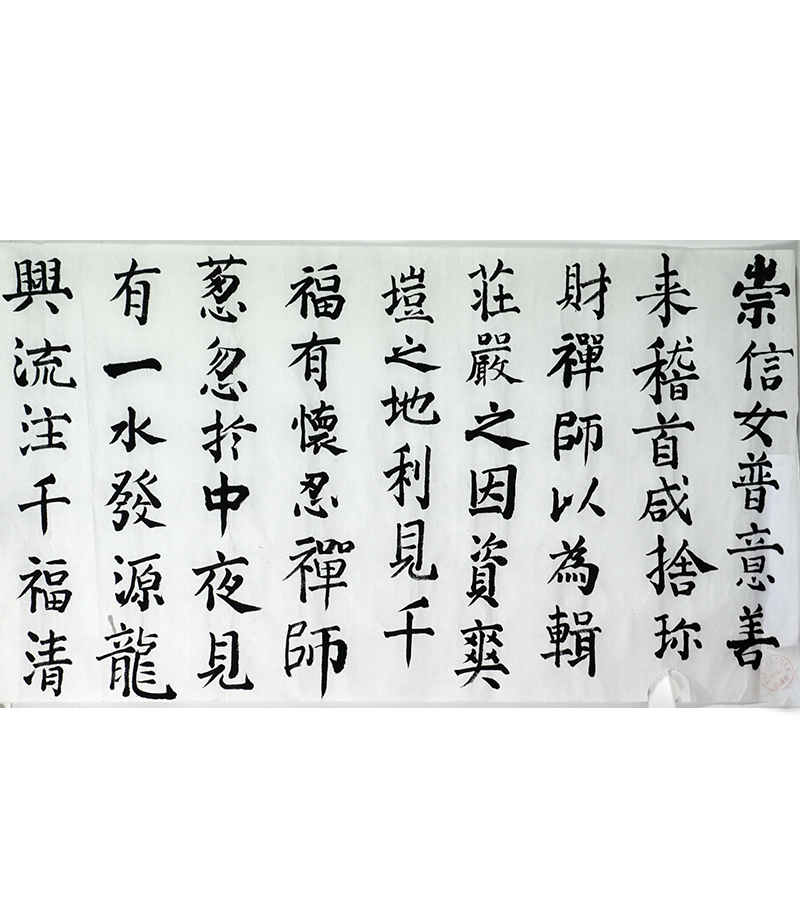 崇信女普意善
来稽首咸捨珎
財禪師以為輯
莊嚴之因資爽
塏之地利見千
福有懷忍禪師
葱忽於中夜見
有一水發源龍
興流注千福清